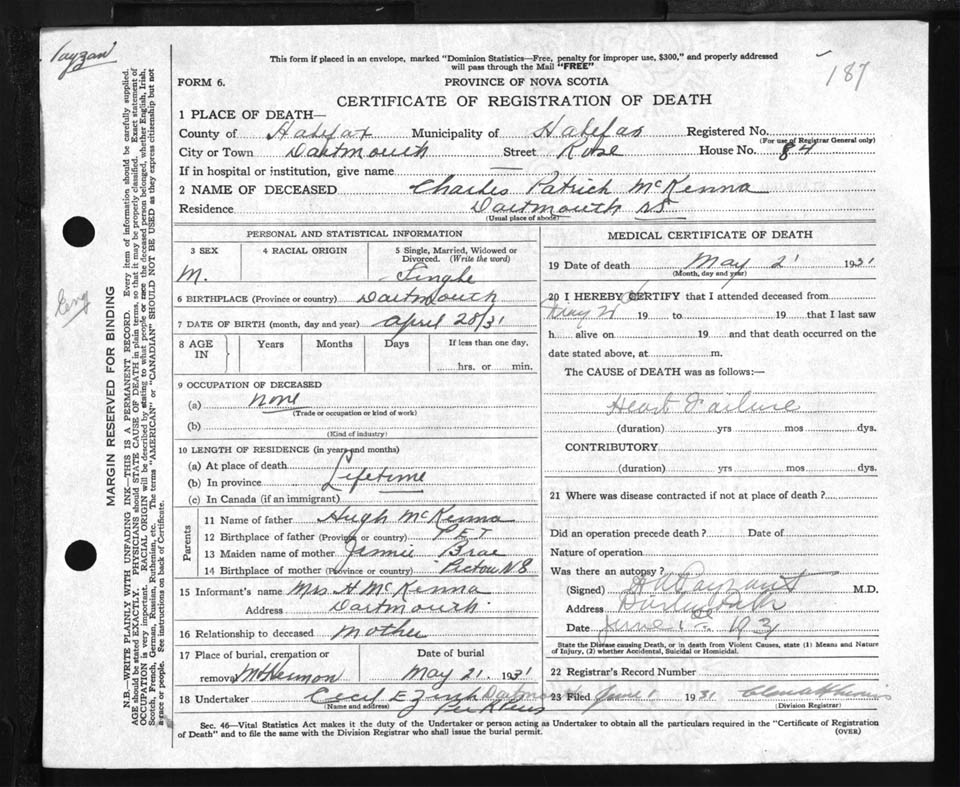 This form if placed in an envelope, marked "Dominion Statistics—Free, penalty for improper use, $300," and properly addressed
will pass through the Mail "FREE"
187
FORM 6.
PROVINCE OF NOVA SCOTIA
CERTIFICATE OF REGISTRATION OF DEATH
1 PLACE OF DEATH—
County of Halifax Municipality of Halifax Registered No.
(For use of Registrar General only)
City or Town Dartmouth Street Rose House No. 84
If in hospital or institution, give name —
2 NAME OF DECEASED Charles Patrick McKenna
Residence Dartmouth NS
(Usual place of abode)
PERSONAL AND STATISTICAL INFORMATION
3 SEX 4 RACIAL ORIGIN 5 Single, Married, Widowed or
Divorced. (Write the word)
M. Single
6 BIRTHPLACE (Province or country) Dartmouth
7 DATE OF BIRTH (month, day and year) April 28/31
8 AGE IN Years Months Days If less than one day,
hrs. or min.
9 OCCUPATION OF DECEASED
(a) None
(Trade or occupation or kind of work)
(b)
(Kind of industry)
10 LENGTH OF RESIDENCE (in years and months)
(a) At place of death
(b) In province Lifetime
(c) In Canada (if an immigrant)
Parents
11 Name of father Hugh McKenna
12 Birthplace of father (Province or country) P E I
13 Maiden name of mother Jinnie Brae
14 Birthplace of mother (Province or country) Pictou NS
15 Informant's name Mrs H McKenna
Address Dartmouth
16 Relationship to deceased Mother
17 Place of burial, cremation or Date of burial
removal Mt Hermon May 21. 1931
18 Undertaker Cecil E Zink
(Name and address)
MEDICAL CERTIFICATE OF DEATH
19 Date of death May 21 1931
(Month, day and year)
20 I HEREBY CERTIFY that I attended deceased from
May 21 19 to 19 that I last saw
h alive on 19 and that death occurred on the
date stated above, at m.
The CAUSE of DEATH was as follows:—
Heart Failure
(duration) yrs mos dys.
CONTRIBUTORY
(duration) yrs mos dys.
21 Where was disease contracted if not at place of death?
Did an operation precede death? Date of
Nature of operation
Was there an autopsy?
(Signed) Payzant M.D.
Address
Date June 1st 1931
State the Disease causing Death, or in death from Violent Causes, state (1) Means and Nature
of Injury, (2) whether Accidental, Suicidal or Homicidal.
22 Registrar's Record Number
23 Filed June 1 1931
(Division Registrar)
Sec. 46—Vital Statistics Act makes it the duty of the Undertaker or person acting as Undertaker to obtain all the particulars required in the "Certificate of Registration
of Death" and to file the same with the Division Registrar who shall issue the burial permit.
(OVER)
MARGIN RESERVED FOR BINDING
Eng
N.B.—WRITE PLAINLY WITH UNFADING INK—THIS IS A PERMANENT RECORD. Every item of information should be carefully supplied.
AGE should be stated EXACTLY. PHYSICIANS should STATE CAUSE OF DEATH in plain terms, so that it may be properly classified. Exact statement of
OCCUPATION is very important. RACIAL ORIGIN will be described by stating to what people or race the deceased person belonged, whether English, Irish,
Scotch, French, German, Russian, Ruthenian, etc. The terms "AMERICAN" or "CANADIAN" SHOULD NOT BE USED as they express citizenship but not
a race or people. See instructions on back of Certificate.